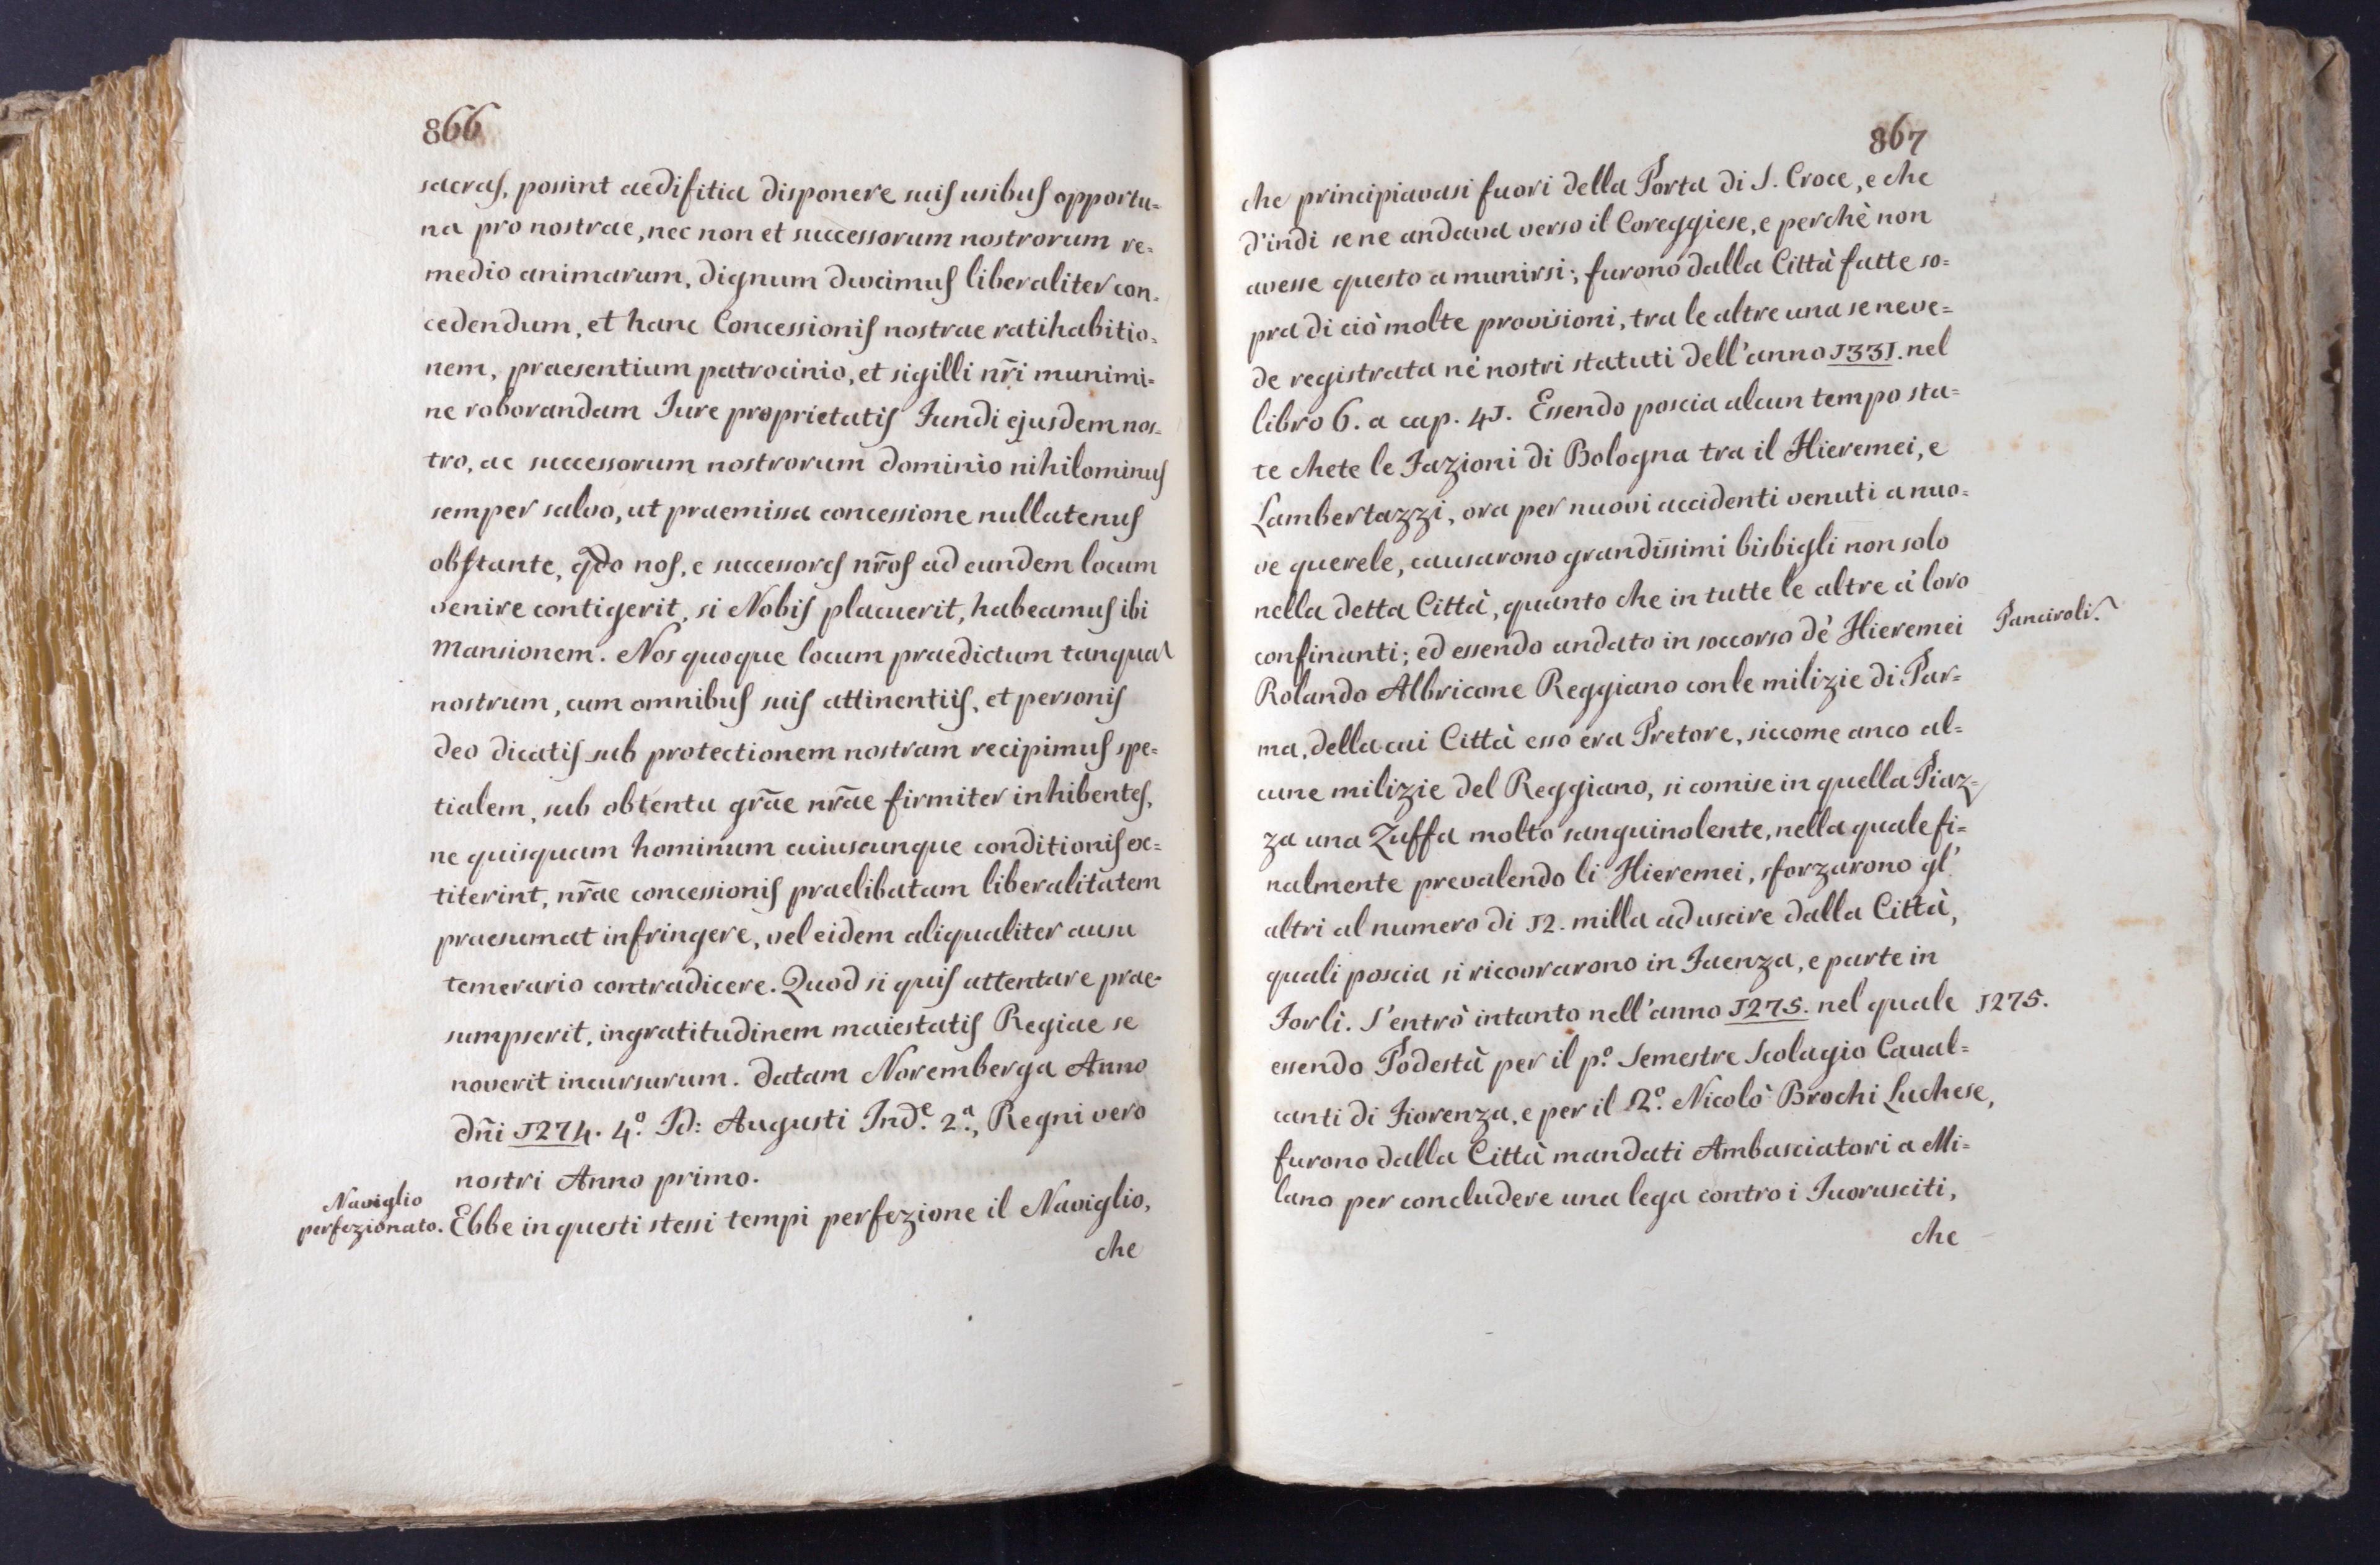 866
sacras, possint aedifitia disponere suis usibus opportu=
na pro nostrae, nec non et successorum nostrorum re=
medio animarum, dignum ducimus liberaliter con=
cedendum, et hanc Concessionis nostrae ratihabitio=
nem, praesentium patrocinio, et sigilli nr̃i munimi=
ne roborandam Iure proprietatis Fundi ejusdem nos=
tro, ac successorum nostrorum dominio nihilominus
semper salvo, ut praemissa concessione nullatenus
obstante, qdo nos, e successores nr̃os ad eundem locum
venire contigerit, si Nobis placuerit, habeamus ibi
Mansionem. Nos quoque locum praedictum tanqua
nostrum, cum omnibus suis attinentiis, et personis
Deo dicatis sub protectionem nostram recipimus spe=
tialem, sub obtentu gr̃ae nr̃ae firmiter inhibentes,
ne quisquam hominum cuiuscunque conditionis ex=
titerint, nr̃ae concessionis praelibatam liberalitatem
praesumat infringere, vel eidem aliqualiter ausu
temerario contradicere. Quod si quis attentare prae=
sumpserit, ingratitudinem maiestatis Regiae se
noverit incursurum. Datam Noremberga Anno
Dñi 1274. 4.º Id: Augusti Ind.e 2.a, Regni vero
nostri Anno primo.
Naviglio
perfezionato. Ebbe in questi stessi tempi perfezione il Naviglio,
che
867
che principiavasi fuori della Porta di S. Croce, e che
d'indi se ne andava verso il Coreggiese, e perchè non
avesse questo a munirsi; furono dalla Città fatte so=
pra di ciò molte provisioni, tra le altre una se ne ve=
de registrata nè nostri statuti dell'anno 1331. nel
libro 6. a cap. 41. Essendo poscia alcun tempo sta=
te chete le Fazioni di Bologna tra il Hieremei, e
Lambertazzi, ora per nuovi accidenti venuti a nuo=
ve querele, causarono grandissimi bisbigli non solo
nella detta Città, quanto che in tutte le altre à loro
confinanti; ed essendo andato in soccorso dè Hieremei Panciroli.
Rolando Albricone Reggiano con le milizie di Par=
ma, della cui Città esso era Pretore, siccome anco al=
cune milizie del Reggiano, si comise in quella Piaz=
za una Zuffa molto sanguinolente, nella quale fi=
nalmente prevalendo li Hieremei, sforzarono gl'
altri al numero di 12. milla ad uscire dalla Città,
quali poscia si ricovrarono in Faenza, e parte in
Forlì. S'entrò intanto nell'anno 1275. nel quale 1275.
essendo Podestà per il p.º Semestre Scolagio Caval=
canti di Fiorenza, e per il 2.º Nicolò Brochi Luchese,
furono dalla Città mandati Ambasciatori a Mi=
lano per concludere una lega contro i Fuorusciti,
che